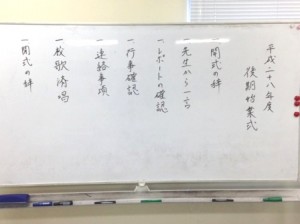 平成二十八年度
後期始業式
一開式の辞
一先生から一言
一レポートの確認
一行事確認
一連絡事項
一校歌斉唱
一閉式の辞